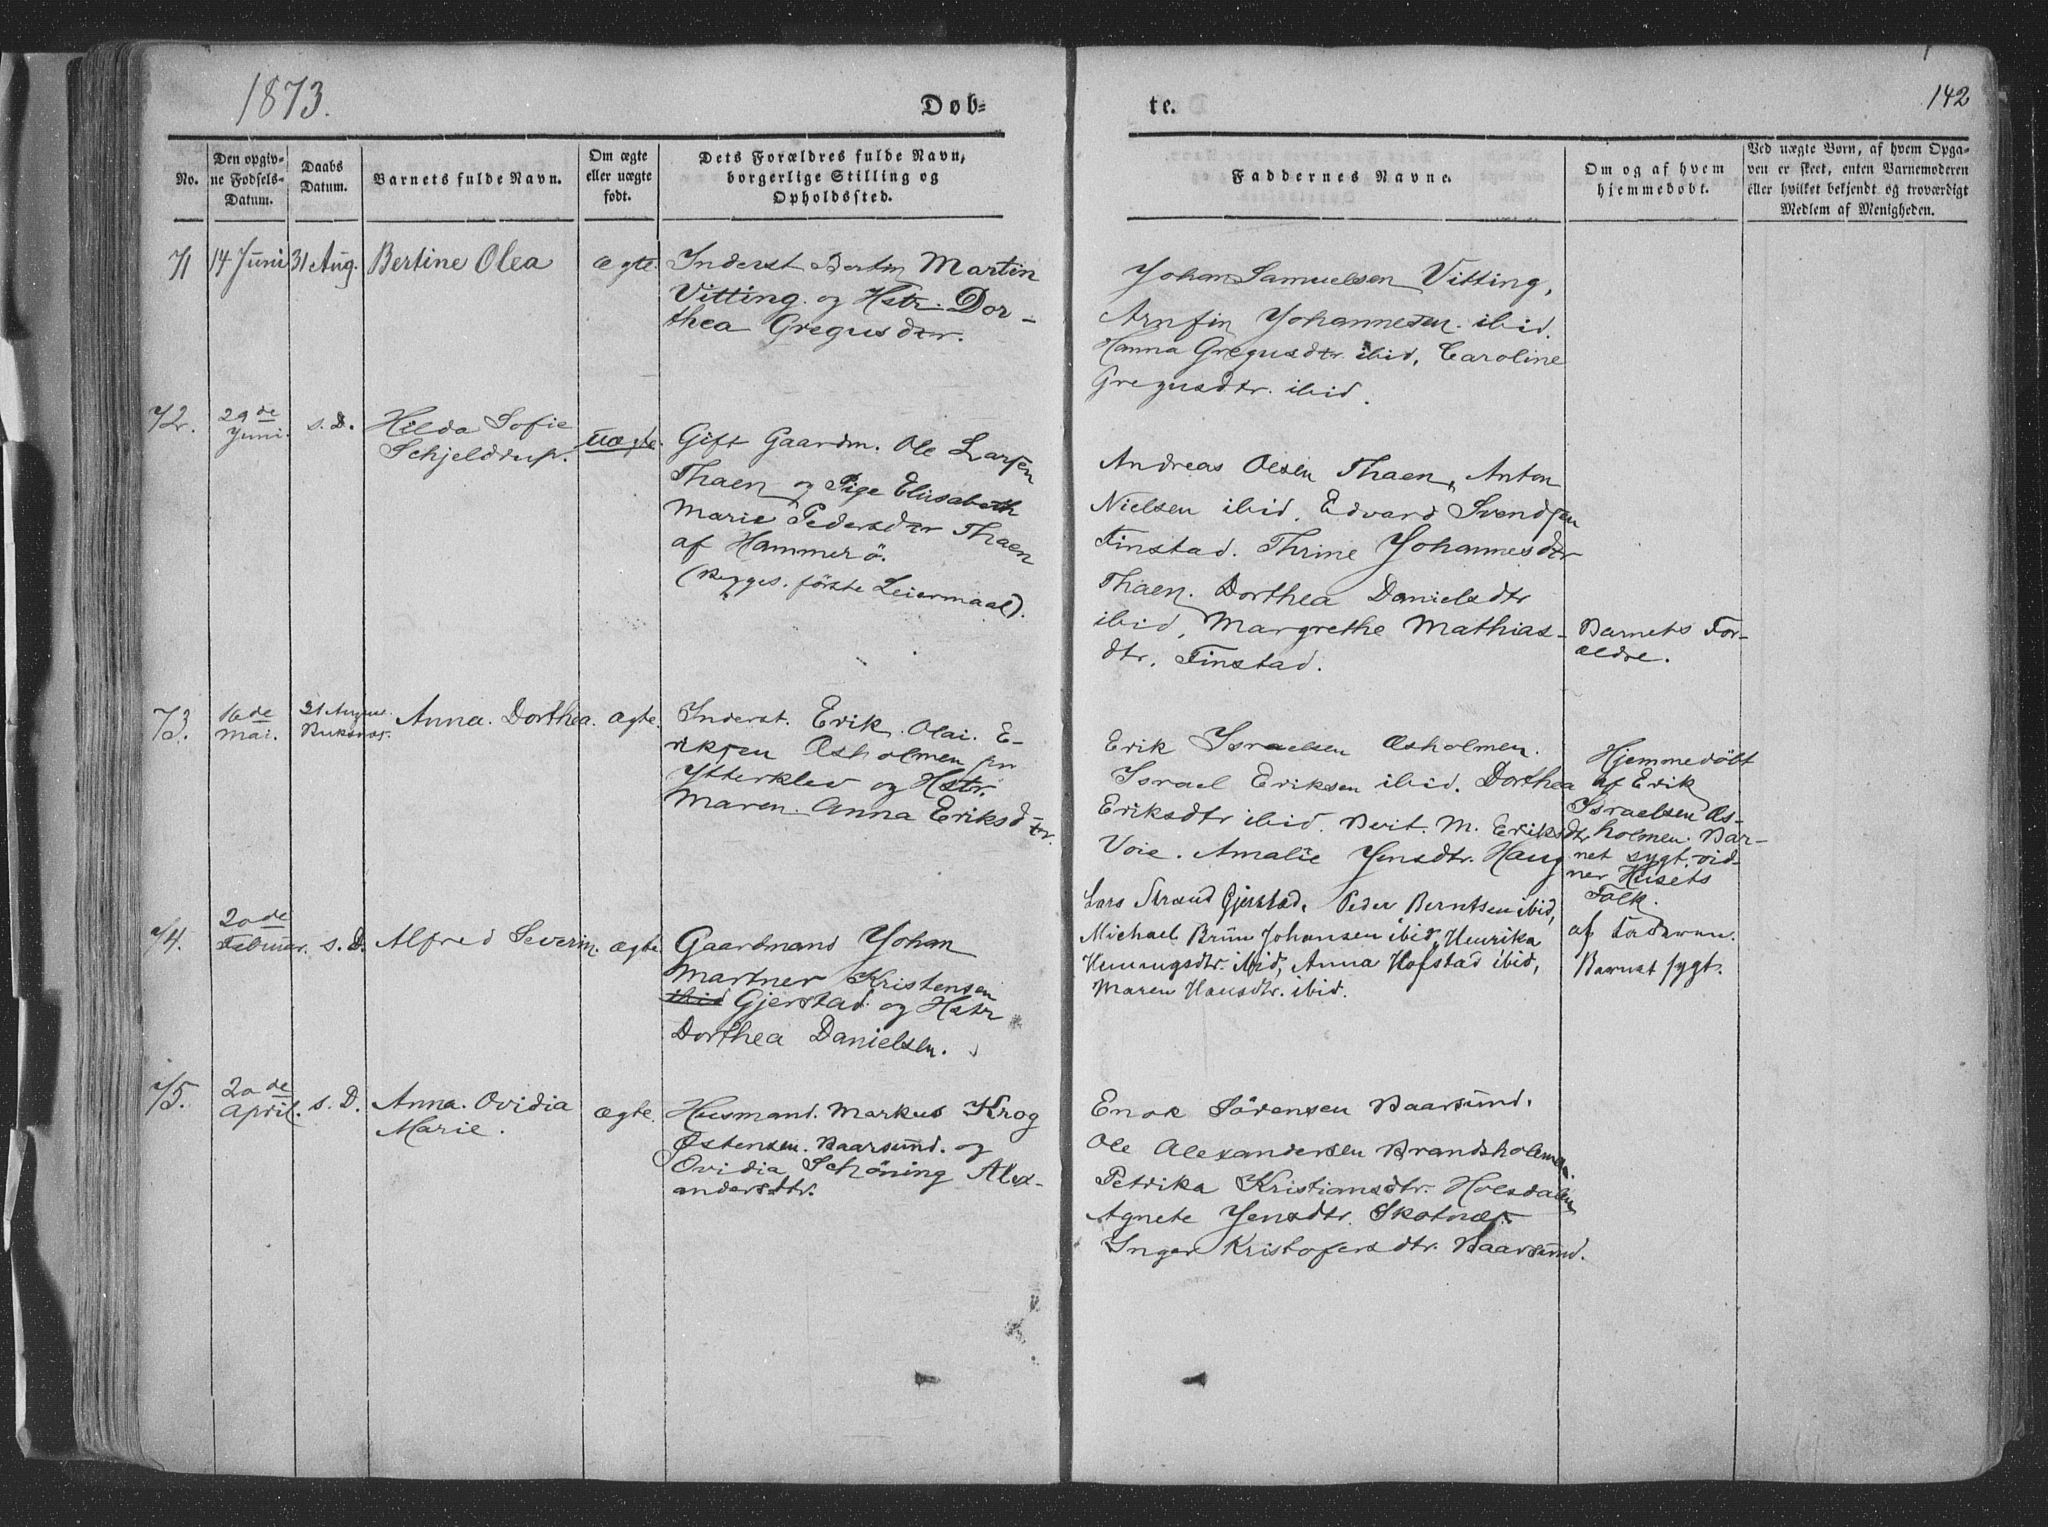 1873.
Døb=
te.
142
No.
Den opgiv-
ne Fødsels-
Datum.
Daabs
Datum.
Barnets fulde Navn.
Om ægte
eller uægte
født.
Dets Forældres fulde Navn,
borgerlige Stilling og
Opholdssted.
Faddernes Navne.
Om og af hvem
hjemmedøbt.
Ved uægte Børn, af hvem Opga-
ven er skeet, enten Barnemoderen
eller hvilket bekjendt og troværdigt
Medlem af Menigheden.
71
14 Juni
31 Aug.
Bertine Olea
ægte.
Inderst Bertin Martin
Vitting og Hstr. Dor-
thea Gregusdtr.
Johan Samuelsen Vitting,
Arnfin Johannesen ibid.
Hanna Gregusdtr ibid, Caroline
Gregusdtr. ibid.
72.
29de
Juni.
s. D.
Hilda Sofie
Schjeldrup.
uægte.
Gift Gaardm. Ole Larsen
Thaen og Pige Elisabeth
Marie Pedersdtr Thaen
af Hammerö.
(Begges förste Leiermaal).
Andreas Olsen Thaen, Anton
Nielsen ibid. Edvard Svendsen
Finstad. Thrine Johannesdtr
Thaen. Dorthea Danielsdtr
ibid, Margrethe Mathias-
dtr. Finstad.
Barnets For-
ældre.
73.
16de
Mai.
31 August
Buksnæs.
Anna. Dorthea.
ægte.
Inderst. Erik. Olai. E-
riksen Æsholmen fm
Ytterklev og Hstr.
Maren. Anna Eriksdtr.
Erik Israelsen Æsholmen.
Israel Eriksen ibid. Dorthea
Eriksdtr ibid. Berit. M. Eriksdtr
Voie. Amalie Jensdtr. Haug
Hjemmedöbt
af Erik
Israelsen Æs-
holmen. Bar-
net sygt. vid-
ner Husets
Folk.
74.
20de
Februar.
s. D.
Alfred Severin.
ægte
Gaardmand Johan
Martner Kristensen
ibid Gjerstad og Hstr
Dorthea Danielsen.
Lars Strand Gjerstad, Peder Berntsen ibid,
Michael Brün Johansen ibid, Henrika
Hemingsdtr. ibid, Anna Hofstad ibid,
Maren Hansdtr. ibid.
af Faderen.
Barnet sygt.
75.
20de
April.
s. D.
Anna. Ovidia
Marie.
ægte.
Husmand. Markus Krog
Østensen. Baarsund. og
Ovidia Schöning Alex-
andersdtr.
Enok Sörensen Baarsund.
Ole Alexandersen Brandsholmen
Petrika Kristiansdtr. Holsdalen
Agnete Jensdtr. Skotnæs.
Inger Kristofersdtr. Baarsund.